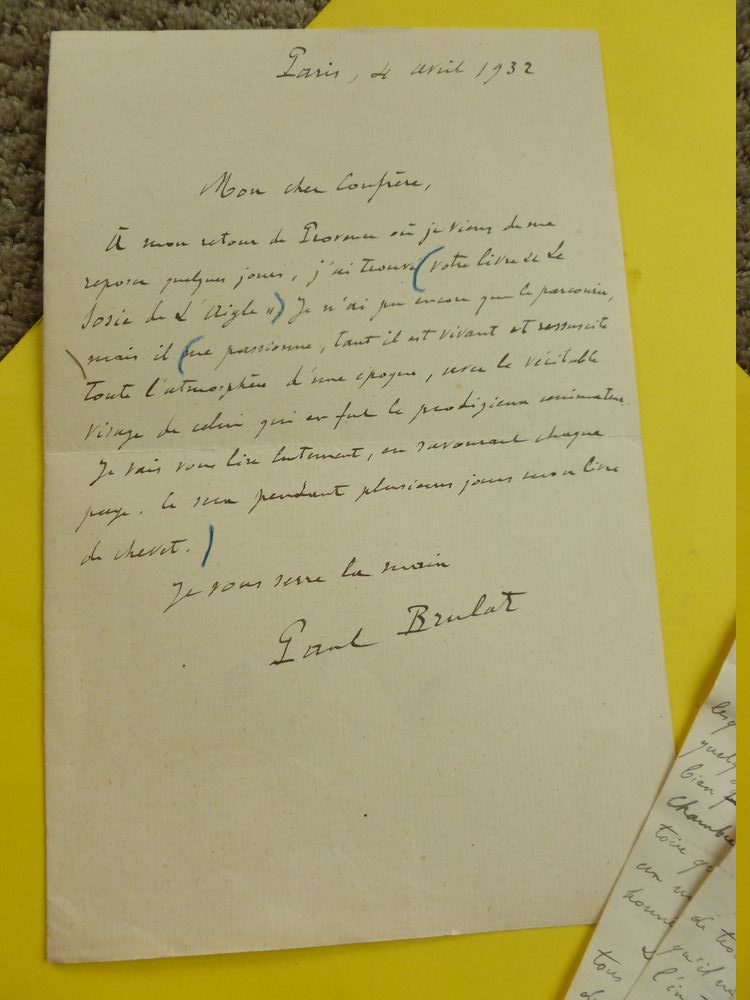 Paris, 4 avril 1932
Mon cher Confrère,
À mon retour de Provence où je viens de me
reposer quelques jours, j'ai trouvé (votre livre de Le
Sosie de L'Aigle ») Je n'ai pu encore que le parcourir,
mais il (me passionne, tant il est vivant et ressuscite
toute l'atmosphère d'une époque, avec le véritable
visage de celui qui en fut le prodigieux animateur.
Je vais vous lire lentement, en savourant chaque
page. Ce sera pendant plusieurs jours mon livre
de chevet.)
Je vous serre la main
Paul Brulat
bien
chambre
qu'il
tous